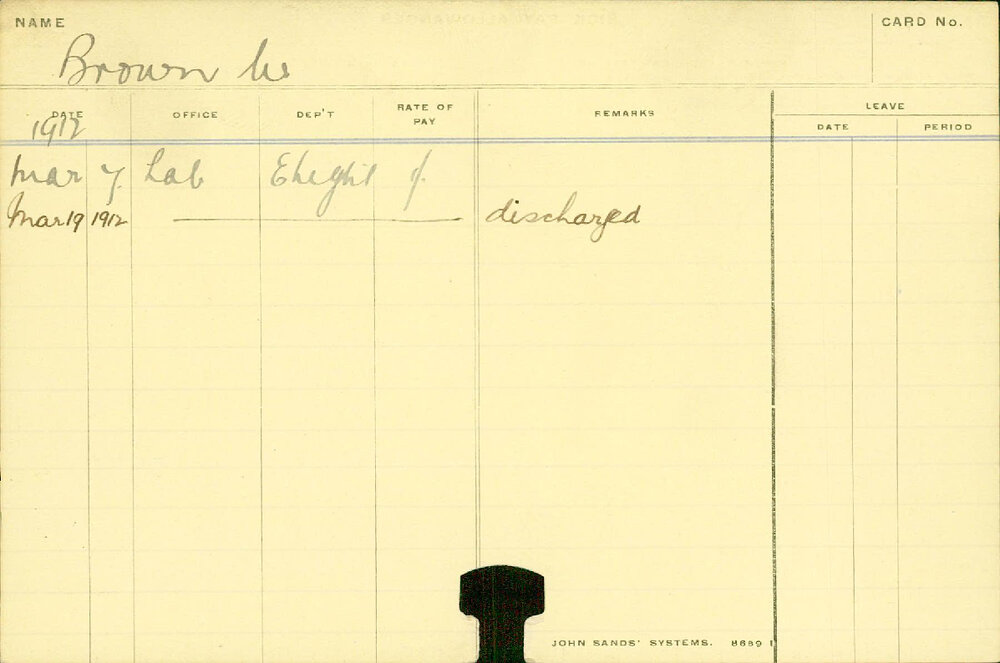 NAME
CARD No.
Brown W
DATE OFFICE DEP'T RATE OF PAY REMARKS LEAVE
DATE PERIOD
1912
Mar 7. Lab
Mar 19 1912 discharged
JOHN SANDS' SYSTEMS. 8689